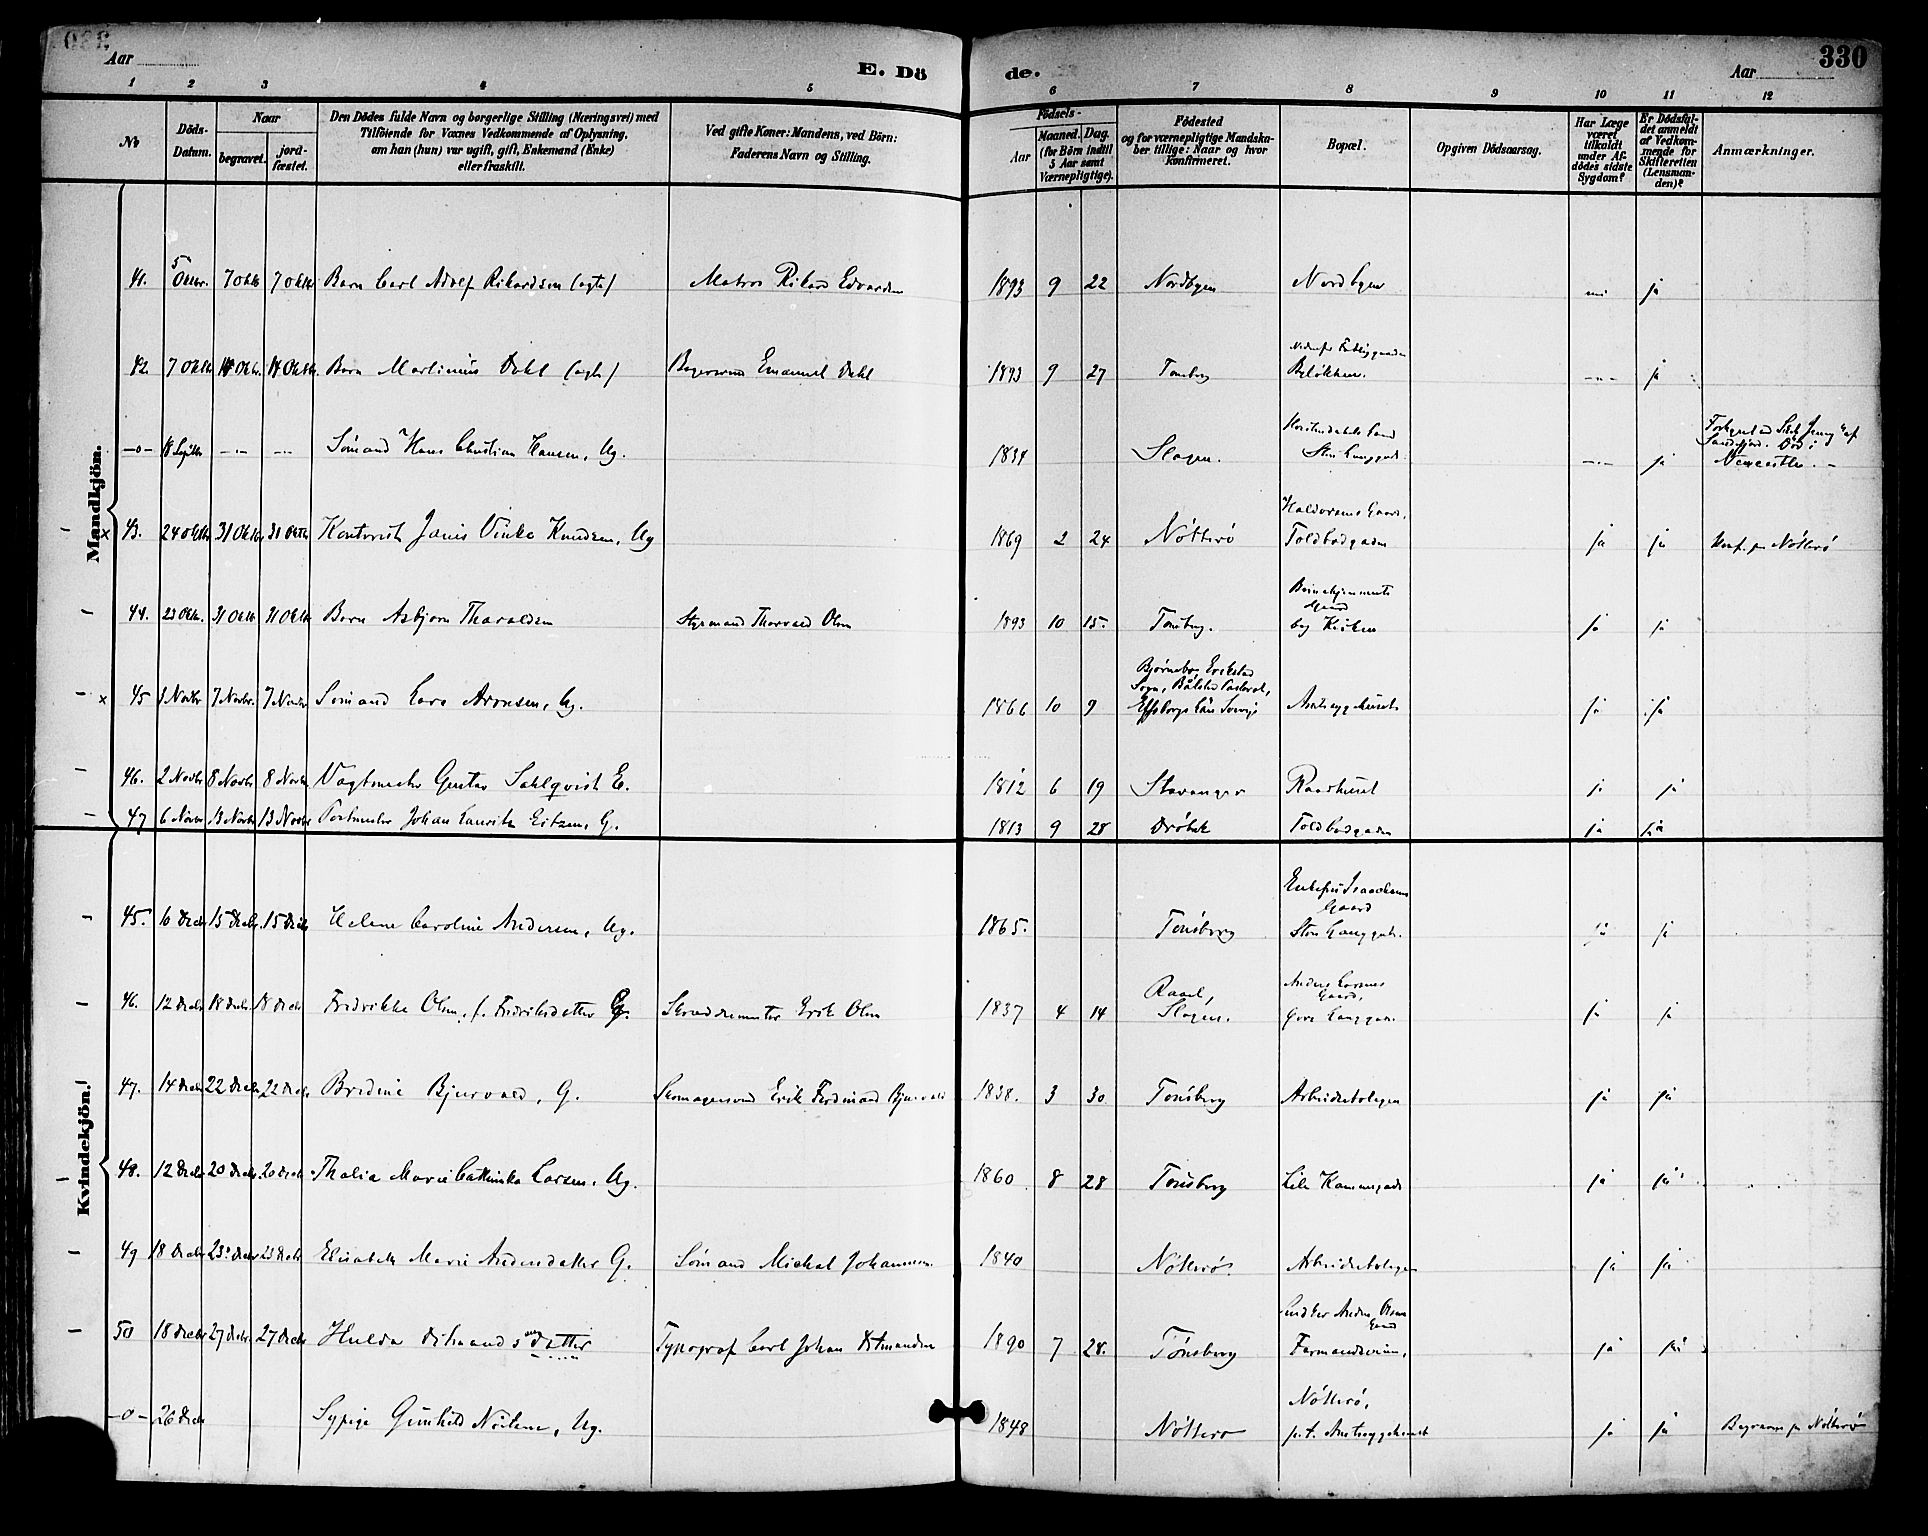 330
Aar
E. Dö de.
Aar
1 2 3 4 5 6 7 8 9 10 11 12
No
Döds-Datum.
Naar
begravet.
jord-fæstet.
Den Dödes fulde Navn og borgerlige Stilling (Næringsvei) med
Tilföiende for Voxnes Vedkommende af Oplysning,
om han (hun) var ugift, gift, Enkemand (Enke)
eller fraskilt.
Ved gifte Koner: Mandens, ved Börn:
Faderens Navn og Stilling.
Födsels-
Aar
Maaned. Dag.
(for Börn indtil
5 Aar samt
Værnepligtige).
Födested
og for værnepligtige Mandska-
ber tillige: Naar og hvor
Konfirmeret.
Bopæl.
Opgiven Dödsaarsag.
Har Læge
været
tilkaldt
under Af-
dödes sidste
Sygdom?
Er Dödsfal-
det anmeldt
af Vedkom-
mende for
Skifteretten
(Lensman-
den)?
Anmærkninger.
Mandkjön.
41. 5 Oktbr. 7 Oktb 7 Oktb Barn Carl Adolf Rikardsen (ægte) Matros Rikard Edvardsen 1893 9 22 Nordbyen Nordbyen nei ja
42 7 Oktb 14 Oktb. 14 Oktb. Barn Martinius Dahl (ægte) Bagersvend Emanuel Dahl 1893 9 27 Tønsberg -"- ja
-o- 18 Septbr -"- -"- Sømand Hans Christian Hansen, Ug. 1834 Slagen. Store Langgade -"- ja Sandefjord. Død i
Newcastle. -
x 43. 24 Oktb 31 Oktb. 31 Oktb Kontorist Janis Vinke Knudsen, Ug 1869 2 24 Nøtterø Haldorsens Gaard,
Toldbodgaden ja ja Konf. paa Nøtterø
44. 23 Oktb. 31 Oktb 31 Oktb Barn Asbjørn Tharaldsen Styrmand Thorvald Olsen 1893 10 15. Tønsberg. Børnehjemmets
Gaard
bag Kirken ja ja
x 45 1 Novbr 7 Novbr. 7 Novbr Sømand Lars Aronsen, Ug. 1866 10 9 Sogn,
Elfsborgs Län Sverige Amtssygehuset ja ja
46. 2 Novbr 8 Novbr 8 Novbr Vagtmester Gustav Sahlqvist E. 1812 6 19 Stavanger Raadhuset ja ja
47 6 Novbr 13 Novbr 13 Novbr Postmester Johan Lauritz Eitzen, G. 1813 9 28 Drøbak Toldbodgaden ja ja
Kvindekjön.
45. 10 Decbr 15 Decbr. 15 Decbr Helene Caroline Andersen, Ug. 1865. Tønsberg Enkefru Isaachsens
Gaard
Store Langgade. ja ja
46. 12 Decbr 18 Decbr. 18 Decbr Fredrikke Olsen, f. Fredriksdatter G. Skræddermester Erik Olsen 1837 4 14 Raael,
Slagen. Anders Larsens
Gaard,
Øvre Langgade. ja ja
47. 14 Decbr 22 Decbr 22 Decbr Bredine Bjurvald, G. Skomagersvend Erik Ferdinand Bjurvald 1838. 3 30 Tønsberg Arbeiderboligen ja ja
48. 12 Decbr 20 Decbr. 20 Decbr Thalia Marie Cathinka Larsen, Ug. 1860 8 28 Tønsberg Lille Kammegade ja ja
49 18 Decbr 23 Decbr 23 Decbr Elisabeth Marie Andersdatter G. Sømand Michal Johannesen 1840 Nøtterø. Arbeiderboligen ja ja
50 18 Decbr 27 Decbr. 27 Decbr Hulda Ditmandsdatter Typograf Carl Johan Ditmandsen 1890 7 28. Tønsberg Anders Olsens
Gaard
Farmandsveien, ja ja
-o- 26 Decbr Sypige Gunhild Nilsen, Ug. 1848 Nøtterø Nøtterø,
p.t. Amtssygehuset ja ja Begraven paa Nøtterø